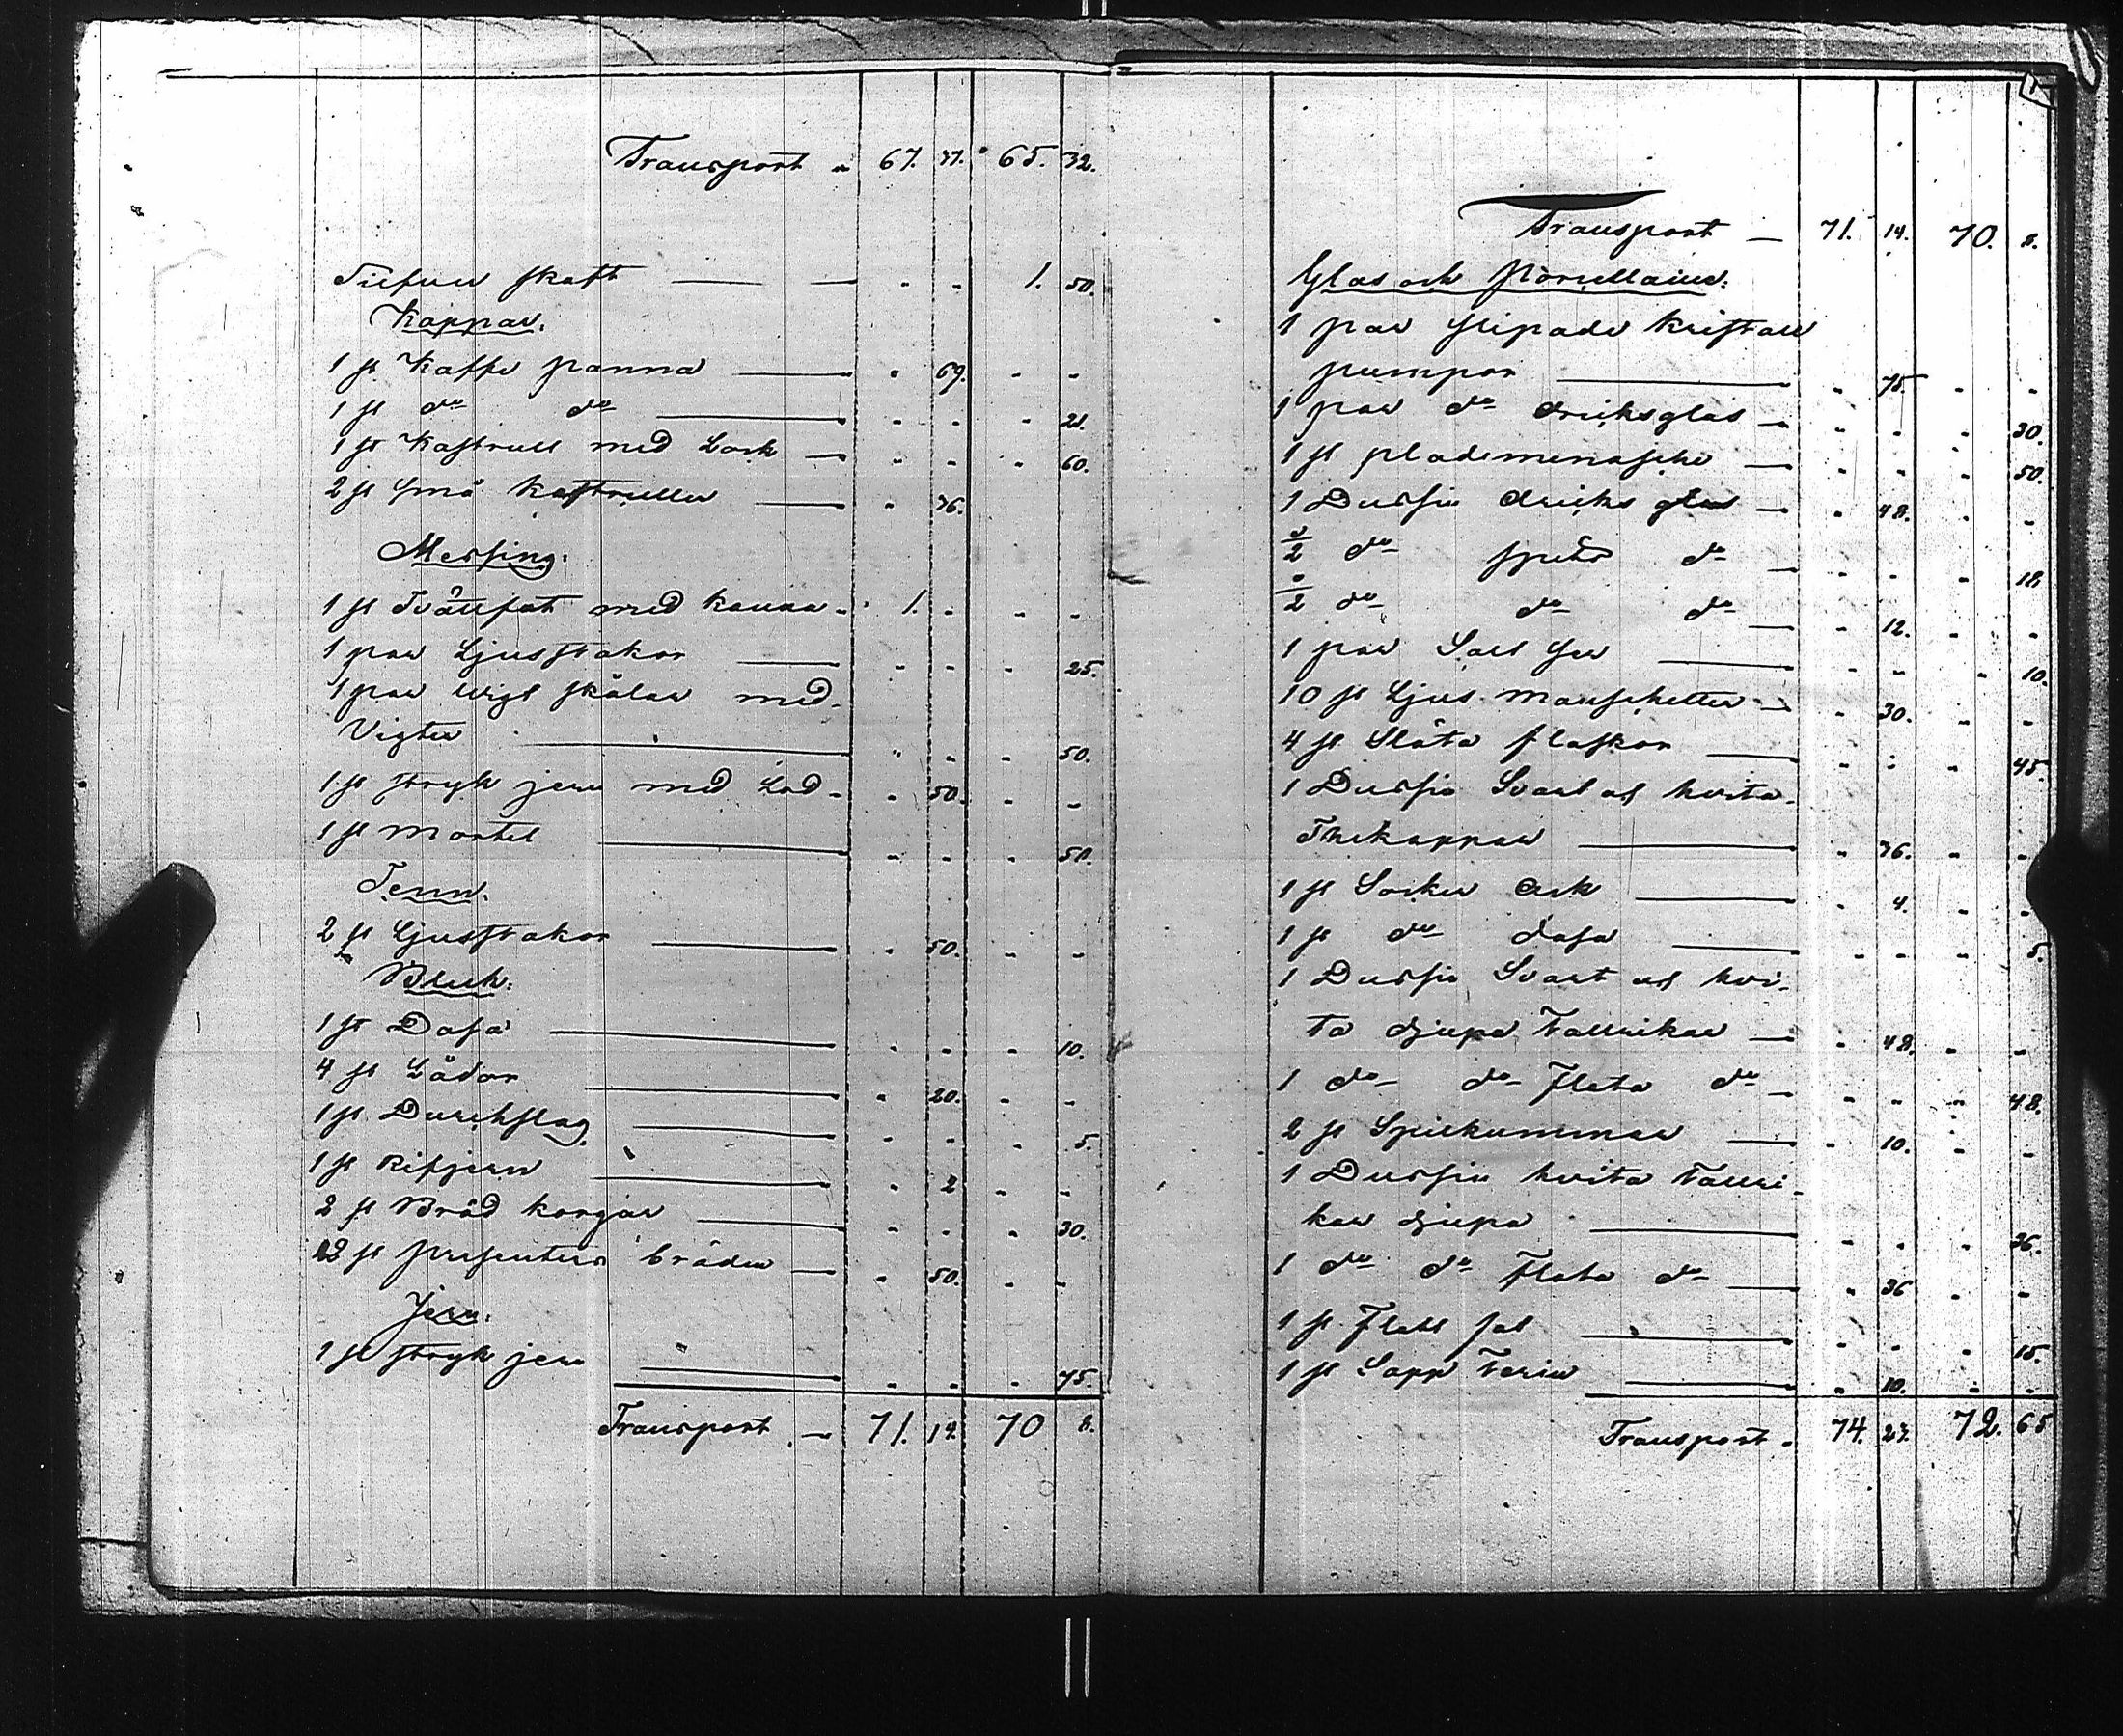 Transport 67. 77. 65. 32.
skaft - - 1. 50.
Koppar.
1 st Kaffe panna - 69. - -
1 st do do - - - 21.
1 st Kastrull med Lock - - - 60.
2 st små kastruller - 76. - -
Messing:
1 st Tvättfat med kanna 1. - - -
1 par Ljusstakor - - - 25.
1 par wigt skålar med
Vigter - - - 50.
1 st stryk jern med Lod - 50. - -
1 st mortel - - - 50.
Tenn.
2 st Ljusstakor - 50. - -
Bleck:
1 st Dosa - - - 10.
4 st Lådor - 20. - -
1 st Durchslag - - - 5.
1 st Rifjern - 2 - -
2 st Bröd korgar - - - 30.
2 st presenter bräden - 50. - -
Jern.
1 st stryk jern - - - 75.
Transport 71. 14. 70 8.
Transport 71. 14. 70. 8.
Glas och Porcellaine:
1 par slipade kristall
pumpor - 75 - -
1 par do dricksglas - - - 30.
1 st plademenasche - - - 50.
1 Dussin dricks glas - 48. - -
1/2 do spets do - - - 18
1/2 do do do - 12. - -
1 par Salt - - - 10.
10 st Ljus manschetter - 30. - -
4 st Släta flaskor - - - 45.
1 Dussin Svart och hvita
Thekoppar - 76. - -
1 st Socker Ask - 4. - -
1 st do dosa - - - 5.
1 Dussin Svart och hvi-
ta djupa Tallrikar - 48. - -
1 do do flata do - - - 48.
2 st Spilkummar - 10. - -
1 Dussin hvita Tallri-
kar djupa - - - 36.
1 do do flata do - 36 - -
1 st Flatt fat - - - 15.
1 st Sopp Terin - 10. - -
Transport 74. 27. 72. 65